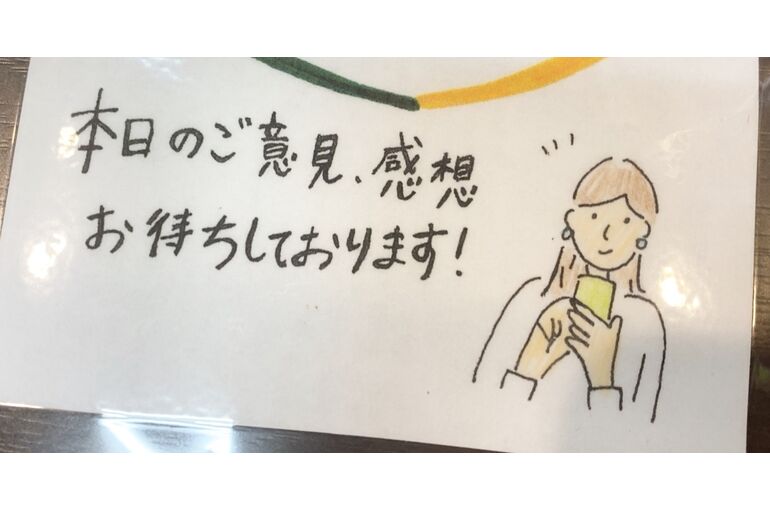 本日のご意見、感想
お待ちしております!